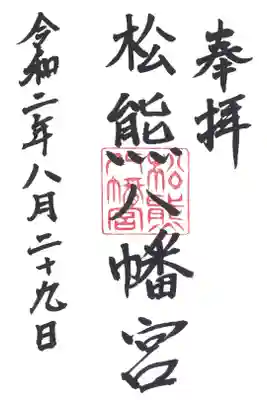 奉拝
松熊八幡宮
松熊
八幡宮
令和二年八月二十九日